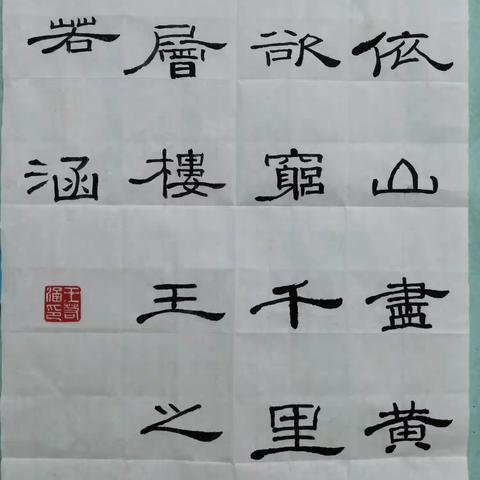 依山盡黄
欲窮千里
層樓王之
若涵
王若涵印